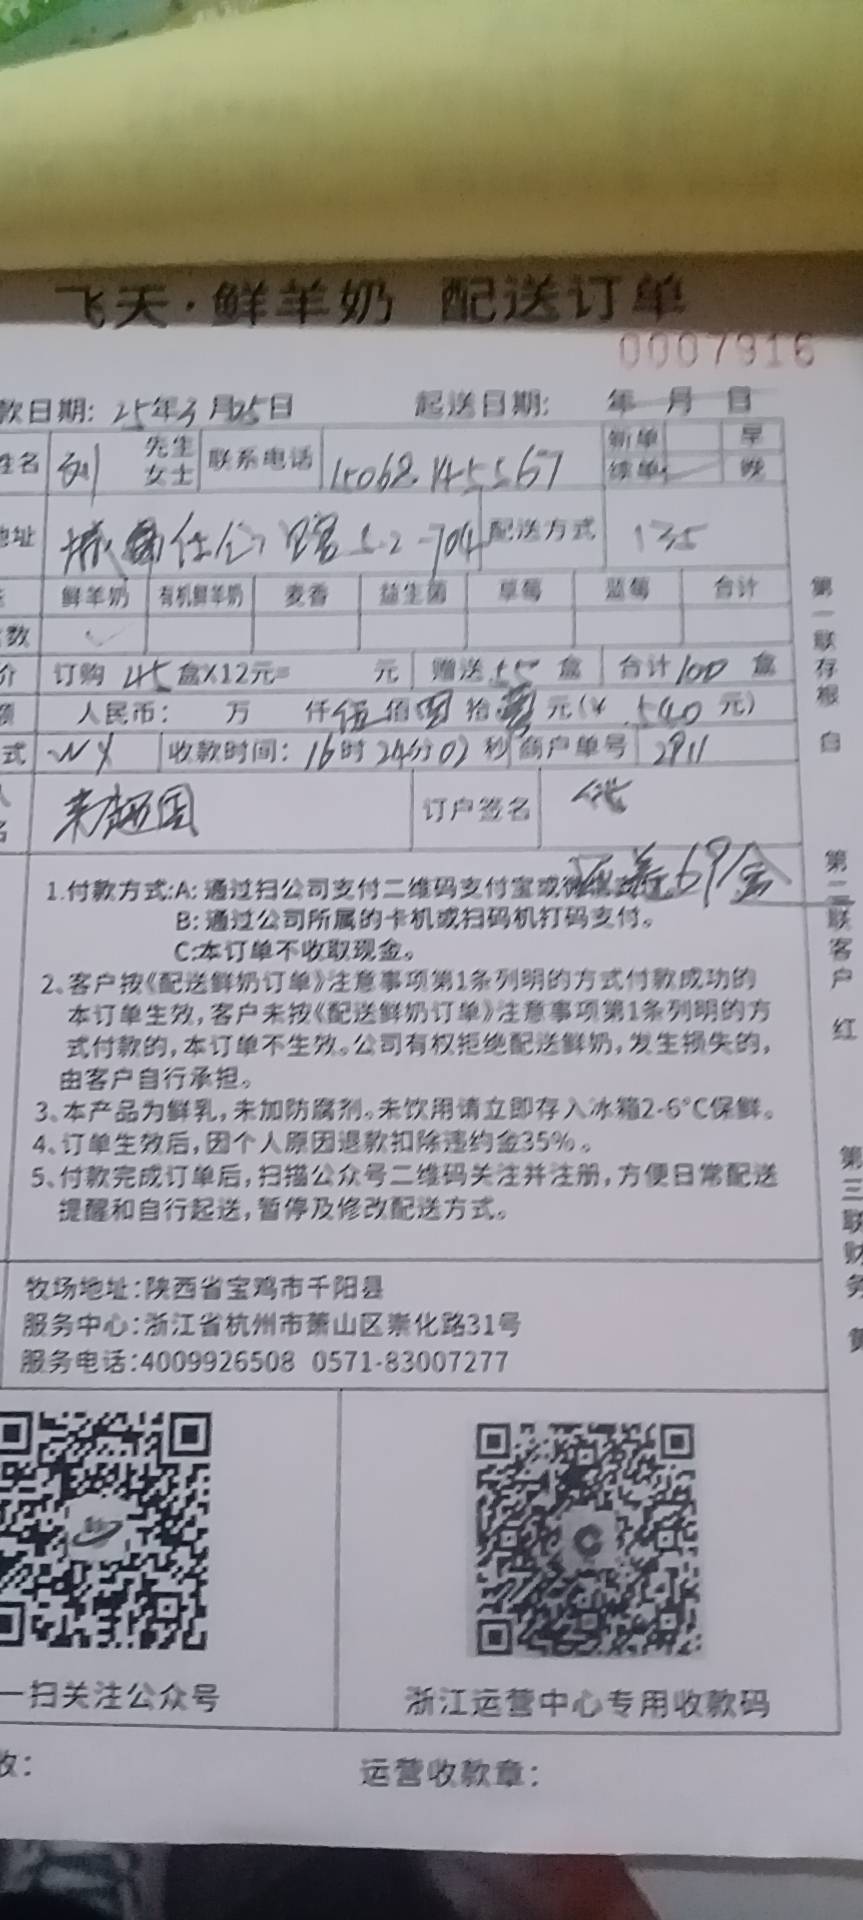 飞天·鲜羊奶 配送订单
0007916
款日期: 25年3月25日 起送日期: 年 月 日
姓名 刘 先生 女士 联系电话 15068145567 新单 早
续单 晚
地址 5-2-704 配送方式 135
鲜羊奶 有机鲜羊奶 麦香 益生菌 草莓 蓝莓 合计
数
价 订购 45 盒X12元= 元 赠送 55 盒 合计 100 盒
额 人民币: 万 仟 伍 佰 肆 拾 零 元(¥ 540 元)
式 WX 收款时间: 16时24分02秒 商户单号 2911
名 来超国 订户签名 代
69盒
1.付款方式:A: 通过扫公司支付二维码支付宝或微
B: 通过公司所属的卡机或扫码机打码支付。
C:本订单不收取现金。
2、客户按《配送鲜奶订单》注意事项第1条列明的方式付款成功的
本订单生效,客户未按《配送鲜奶订单》注意事项第1条列明的方
式付款的,本订单不生效。公司有权拒绝配送鲜奶,发生损失的,
由客户自行承担。
3、本产品为鲜乳,未加防腐剂。未饮用请立即存入冰箱2-6°C保鲜。
4、订单生效后,因个人原因退款扣除违约金35%。
5、付款完成订单后,扫描公众号二维码关注并注册,方便日常配送
提醒和自行起送,暂停及修改配送方式。
牧场地址:陕西省宝鸡市千阳县
服务中心:浙江省杭州市萧山区崇化路31号
服务电话:4009926508 0571-83007277
一扫关注公众号
浙江运营中心专用收款码
收: 运营收款章:
第一联存根 白
第二联客户 红
第三联财务 黄